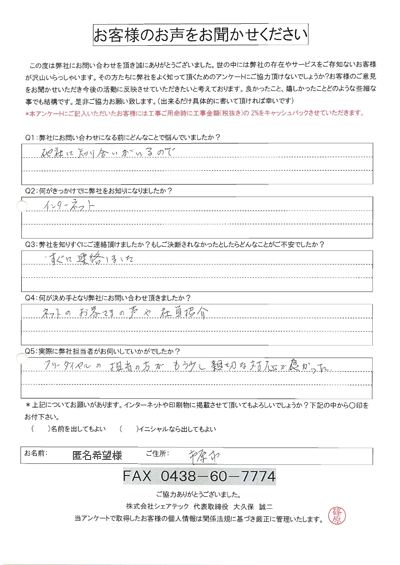 お客様のお声をお聞かせください
この度は弊社にお問い合わせを頂き誠にありがとうございました。世の中には弊社の存在やサービスをご存知ないお客様
が沢山いらっしゃいます。その方たちに弊社をよく知って頂くためのアンケートにご協力頂けないでしょうか?お客様のご意見
をお聞かせいただき今後の活動に反映させていただきたいと考えております。良かったこと、嬉しかったことなどのような些細な
事でも結構です。是非ご協力お願い致します。(出来るだけ具体的に書いて頂ければ幸いです)
*本アンケートにご記入いただいたお客様には工事ご用命時に工事金額(税抜き)の 2%をキャッシュバックさせていただきます。
Q1:弊社にお問い合わせになる前にどんなことで悩んでいましたか?
他社に知り合いがいるので
Q2:何がきっかけでに弊社をお知りになりましたか?
インターネット
Q3:弊社を知りすぐにご連絡頂けましたか?もしご決断されなかったとしたらどんなことがご不安でしたか?
すぐに連絡しました
Q4:何が決め手となり弊社にお問い合わせ頂きましたか?
ネットのお客さまの声や社員紹介
Q5:実際に弊社担当者がお伺いしていかがでしたか?
フリーダイヤルの担当の方がもう少し親切な対応が
*上記についてお願いがあります。インターネットや印刷物に掲載させて頂いてもよろしいでしょうか?下記の中から○印を
お付下さい。
( )名前を出してもよい ( )イニシャルなら出してもよい
お名前: 匿名希望様 ご住所: 市原市
FAX 0438-60-7774
ご協力ありがとうございました。
株式会社シェアテック 代表取締役 大久保 誠二
当アンケートで取得したお客様の個人情報は関係法規に基づき厳正に管理いたします。
篠原